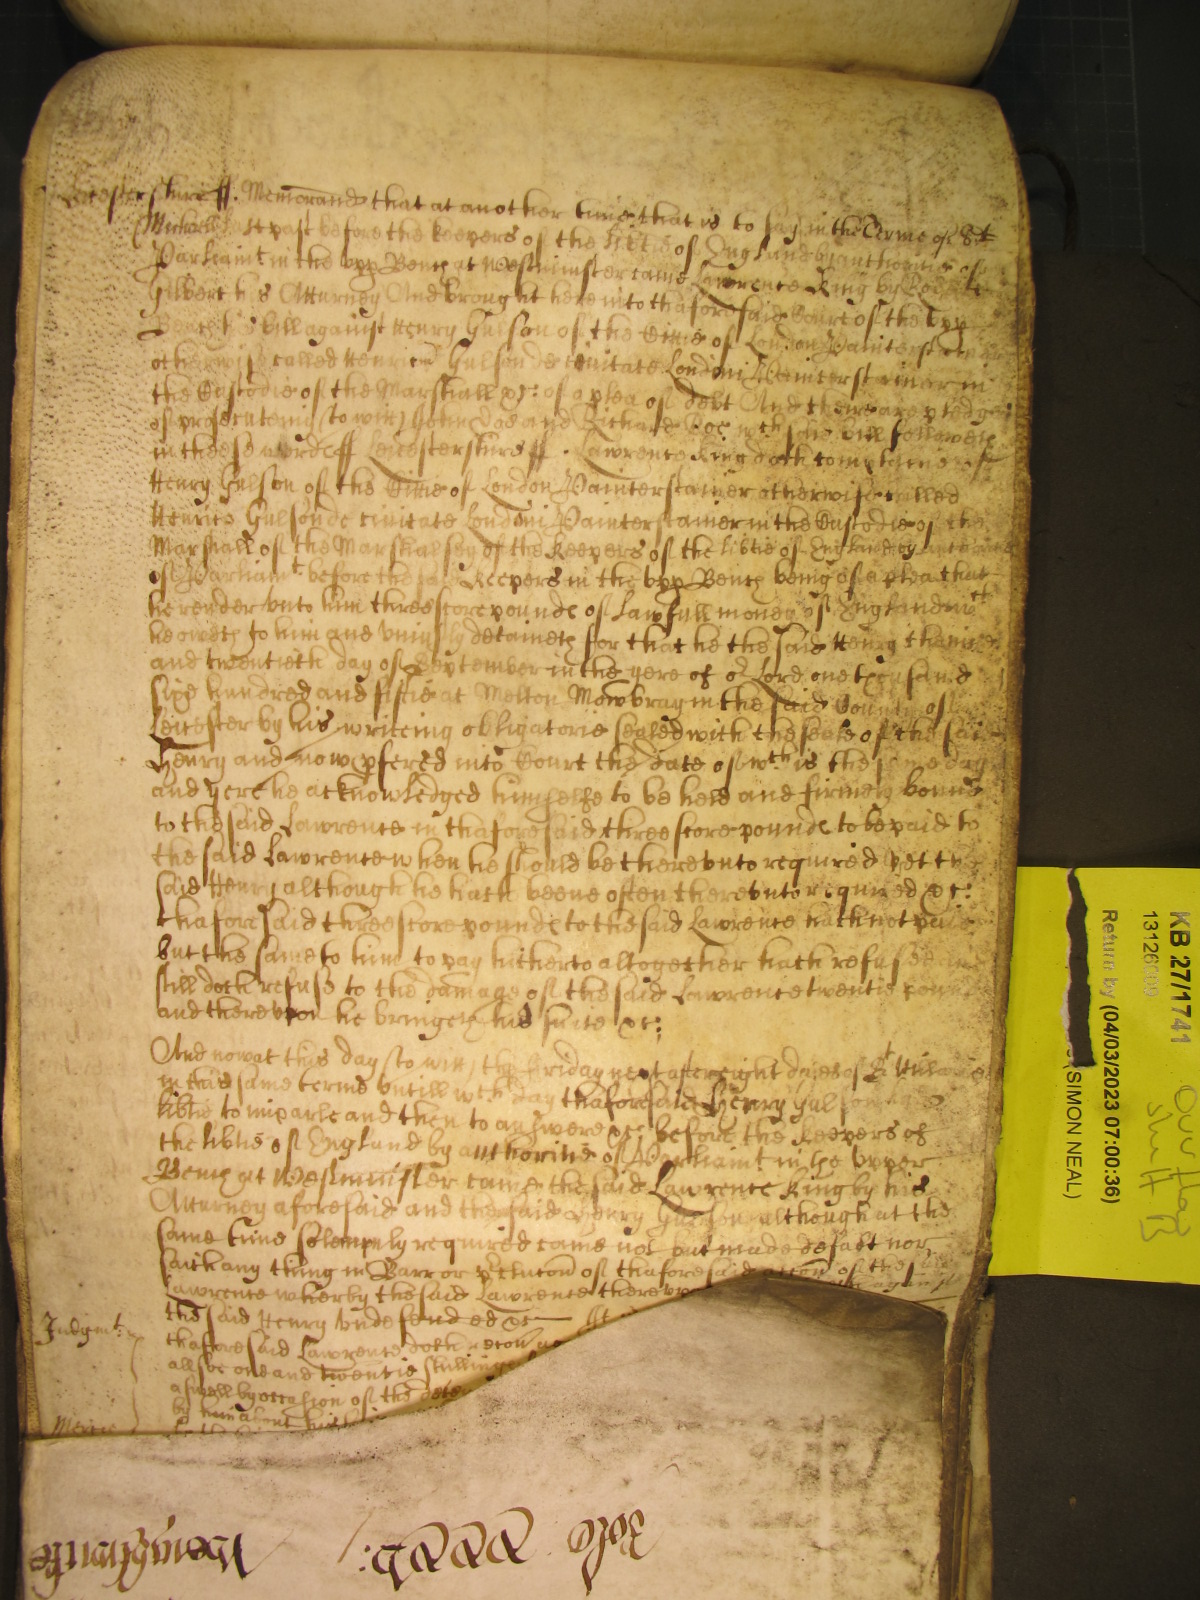 Leicestershire ss. Memorand that at another time that is to say in the Terme of St
Michaell last past before the keepers of the libtie of England by authoritie of
Parliamt in the vpp Bench at Westminster came Lawrence King by
Gilbert his Atturney And brought here into thaforesaid Court of the vpp
Bench his bill against Henry Gulson of the Cittie of London Painterstainer
otherwise called Henricu Gulson de civitate London Painterstainer in
the Custodie of the Marshall &c. of a plea of debt And there are pledges
of prosecuteing (to witt) John Doe and Richard Roe wch said bill followeth
in theese words ss Leicestershire ss. Lawrence King doth complaine of
Henry Gulson of the Cittie of London Painterstainer otherwise called
Henrico Gulson de civitate London Painterstainer in the Custodie of the
Marshall of the Marshalsey of the Keepers of the libtie of England by
of Parliamt before the said Keepers in the vpp Bench being of a plea that
he render vnto him threescore pounds of lawfull money of England wch
he oweth to him and vniustly detaineth for that he the said Henry
and twentieth day of September in the yere of or Lord one thousand
six hundred and fiftie at Melton Mowbray in the said County of
Leicester by his writeing obligatorie sealed with the seale of the said
Henry and now pfered into Court the date of wch is the same day
and yere he acknowledged himselfe to be held and firmely bound
to the said Lawrence in thaforesaid threescore pounds to be paid to
the said Lawrence when he should be therevnto required yet the
said Henry although he hath beene often therevnto required &c:
thaforesaid threescore pounds to the said Lawrence hath not paid
but the same to him to pay hitherto altogether hath refused and
still doth refuse to the damage of the said Lawrence twentie pounds
and therevpon he bringeth his suite &c:
And now at this day (to witt) the Friday next after eight dayes of St Hilarie
in this same terme vntill wch day thaforesaid Henry Gulson
libtie to imparle and then to answere &c: before the Keepers of
the libtie of England by authoritie of Parliamt in the vpper
Bench at Westminster came the said Lawrence King by his
Atturney aforesaid and the said Henry Gulson although at the
same time solempnly required came not but made default nor
saith any thing in Barr or of thaforesaid accon of the said
Lawrence whereby the said Lawrence therevpon against
the said Henry vndefended &c
Iudgmt
thaforesaid Lawrence doth recov
allsoe one and twentie shillings
aswell by occasion of the deten
by him about his
Mercie
KB 27/1741
13126009
Return by (04/03/2023 07:00:36)
(SIMON NEAL)